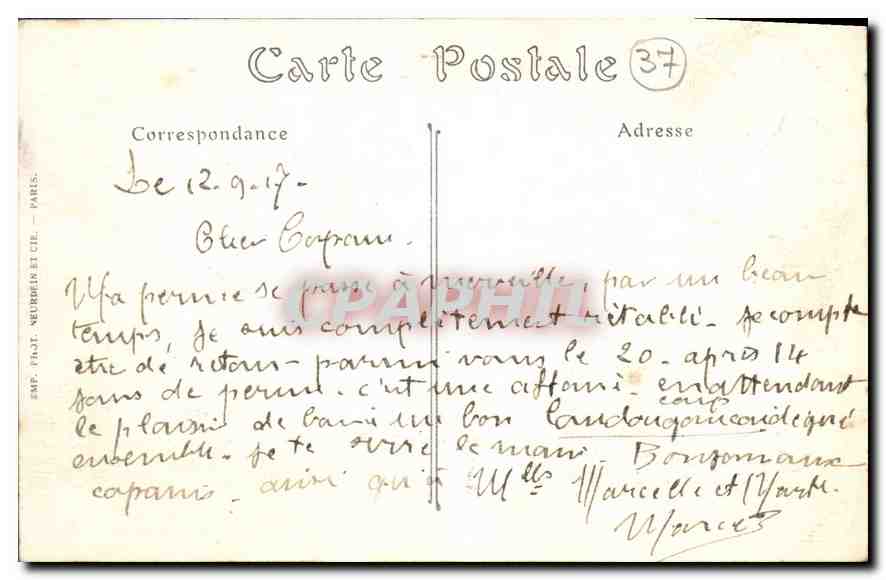 Carte Postale
37
Correspondance
Adresse
EMP. PHOT. NEURDEIN ET CIE. — PARIS.
Le 12-9-17-
Cher Copain.
Ma perme se passe à merveille, par un beau
temps, je suis complètement rétabli. je compte
être de retour parmi vous le 20. après 14
jours de perme. c'est une affaire. en attendant
le plaisir de boire un bon coup
ensemble. je te serre la main. Bonjour aux
copains. ainsi qu'à Mlles Marcelle et Marthe.
Marcel
CPAPHIL